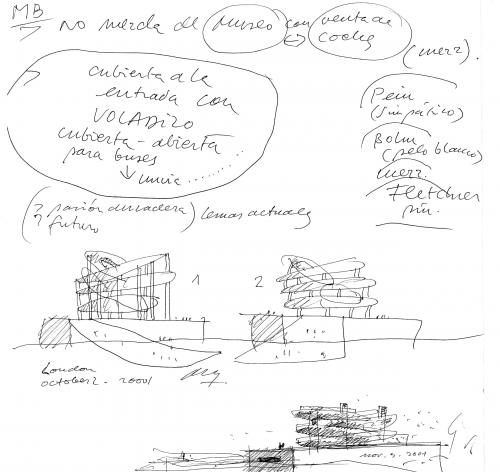 MB
no mezcla de museo con venta de
coches
(merz).
cubierta a la
entrada con
VOLADIZO
cubierta-abierta
para buses
lluvia........
Pein
(simpático)
Bolm
(pelo blanco)
merz.
Fletchner
(? pasión duradera) lemas actuales
? futuro
1 2
London
october 2. 20001
nov. 9. 2001